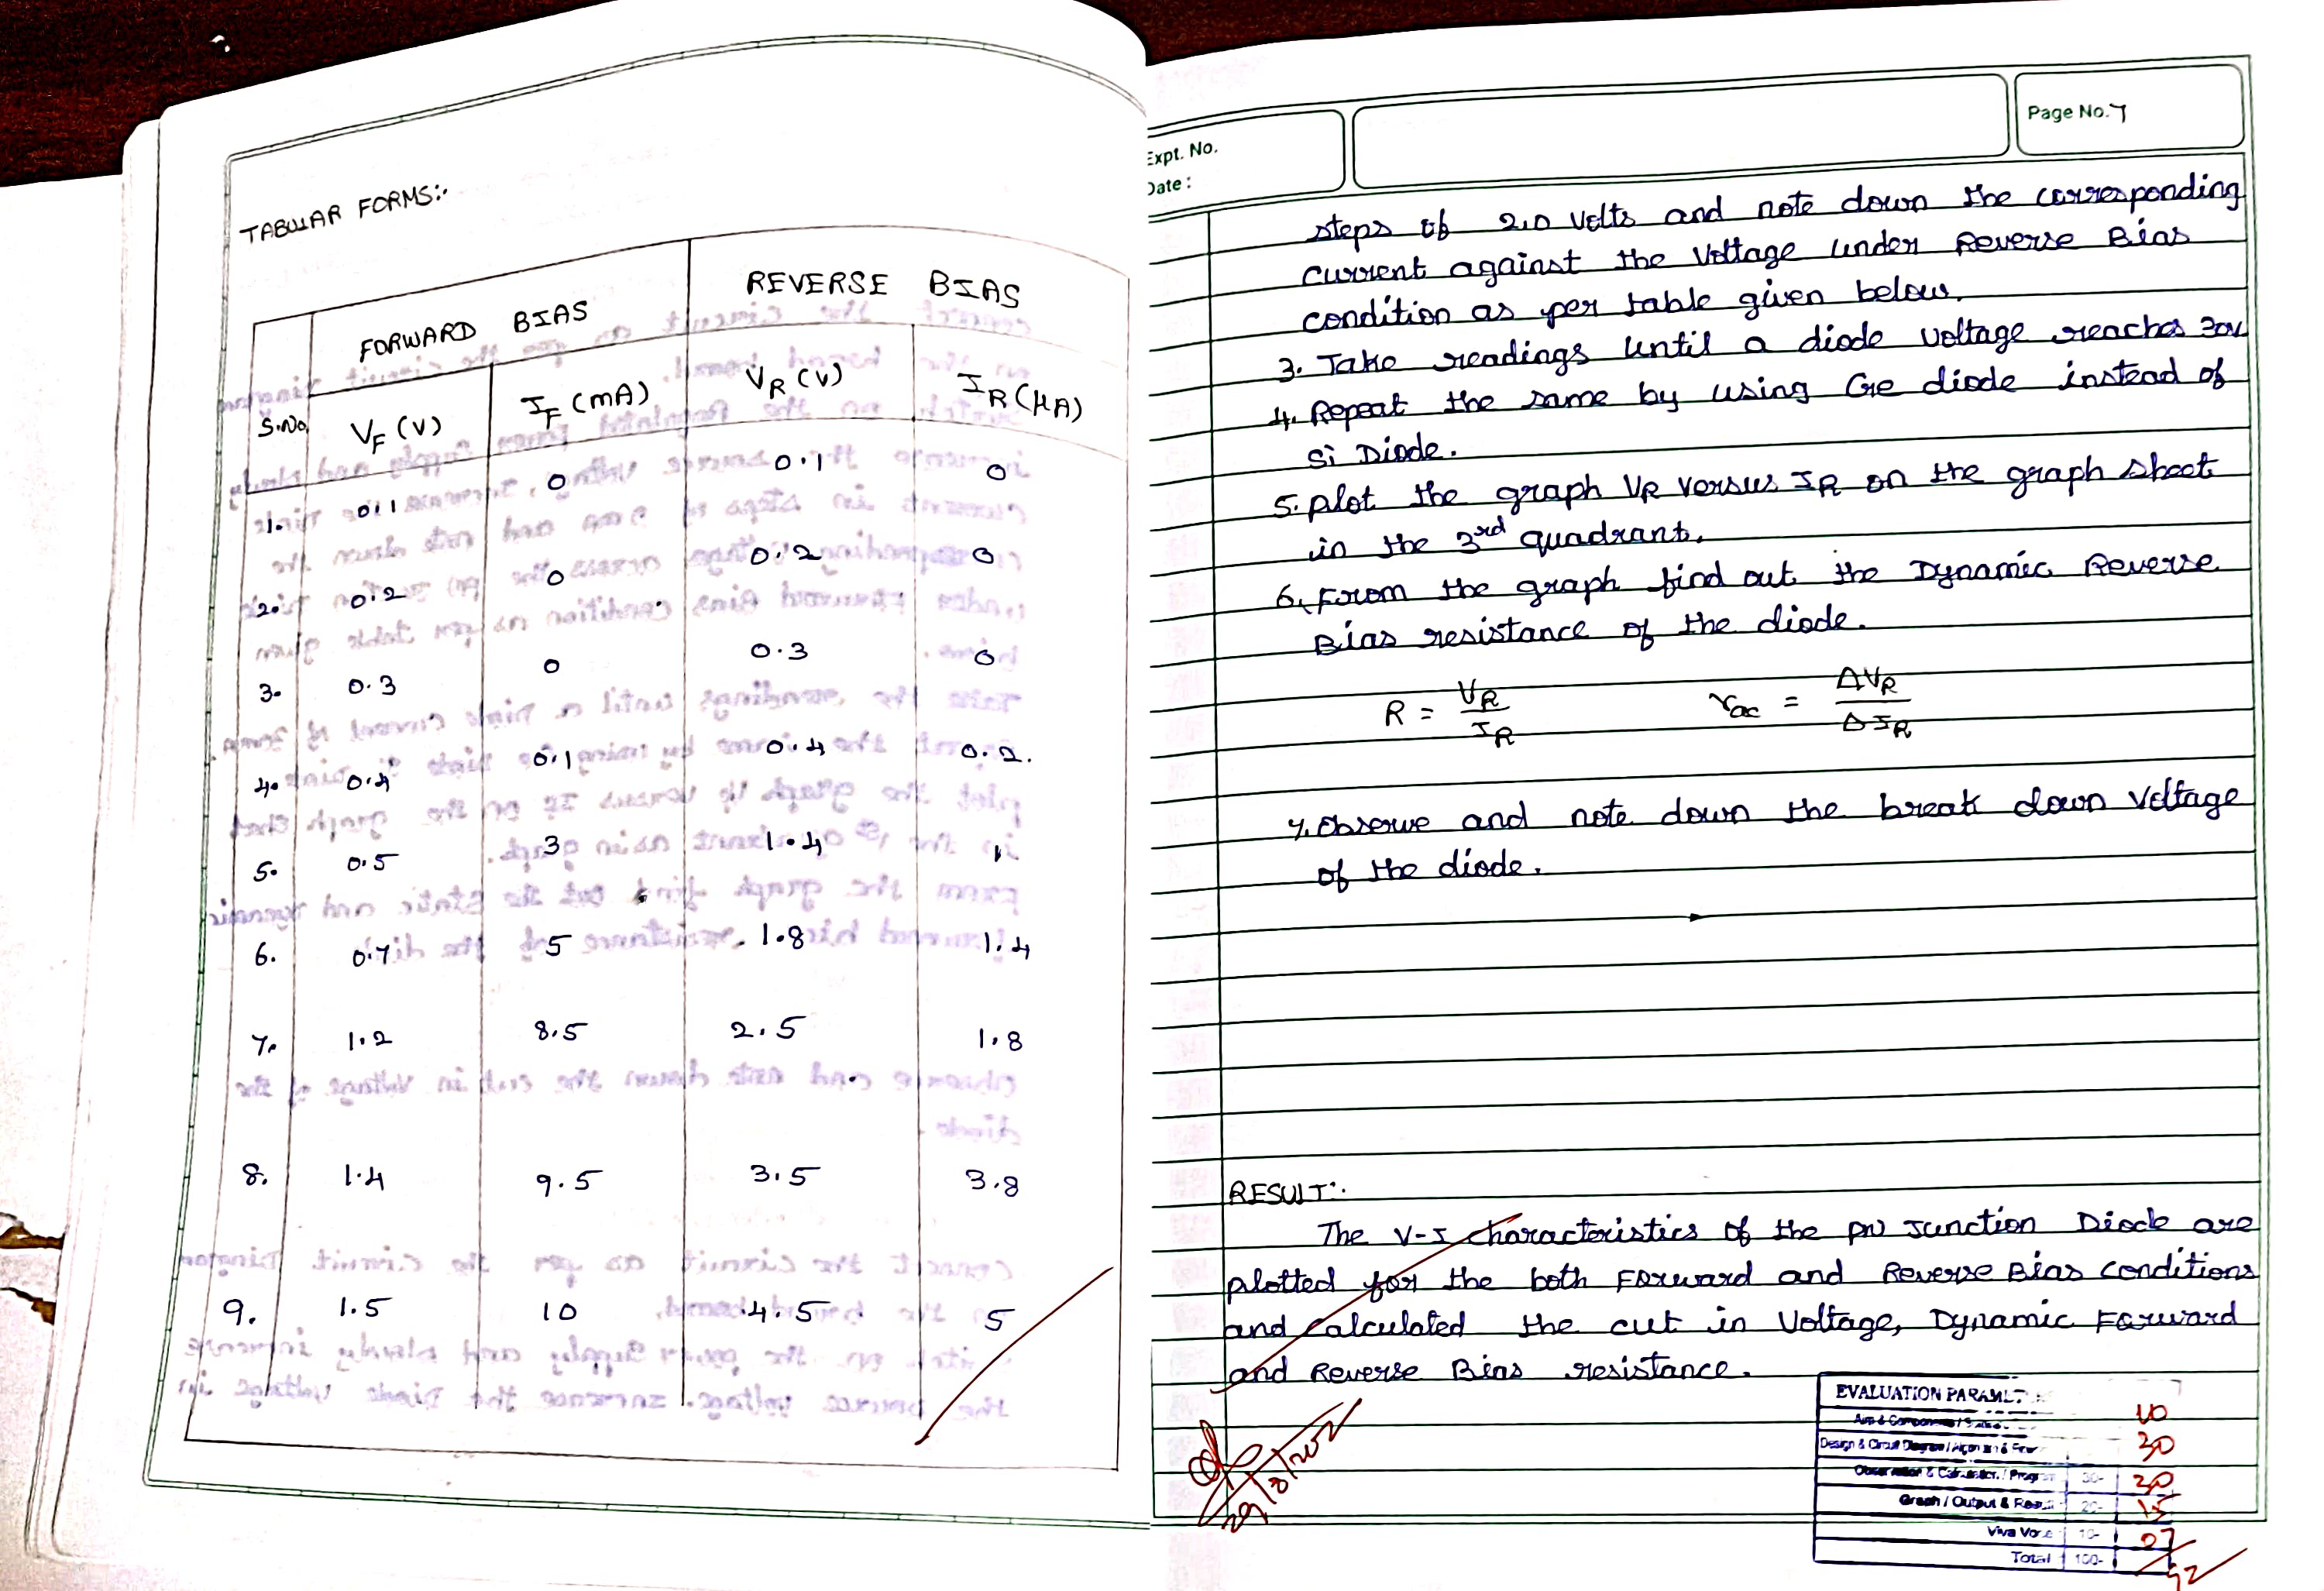 TABULAR FORMS:-
FORWARD BIAS REVERSE BIAS
S.No. VF (V) IF (mA) VR (V) IR (μA)
1. 0.1 0 0.1 0
2. 0.2 0 0.2 0
3. 0.3 0 0.3 0
4. 0.4 0.1 0.4 0.2.
5. 0.5 3 1.4 1
6. 0.7 5 1.8 1.4
7. 1.2 8.5 2.5 1.8
8. 1.4 9.5 3.5 3.8
9. 1.5 10 4.5 5
Expt. No.
Date :
Page No. 7
steps of 2.0 Volts and note down the corresponding
current against the Voltage under Reverse Bias
condition as per table given below.
3. Take readings until a diode voltage reaches 30V
4. Repeat the same by using Ge diode instead of
Si Diode.
5. plot the graph VR versus IR on the graph sheet
in the 3rd quadrant.
6. From the graph find out the Dynamic Reverse
Bias resistance of the diode.
R = VR/IR rac = ΔVR/ΔIR
7. Observe and note down the break down Voltage
of the diode.
RESULT:.
The V-I characteristics of the PN Junction Diode are
plotted for the both Forward and Reverse Bias conditions
and calculated the cut in Voltage, Dynamic Forward
and Reverse Bias resistance.
EVALUATION
10
Design & Circuit Diagram / 30
Observation & / 30- 30
Graph / Output & 20- 15
Viva 10- 07
Total 100- 92